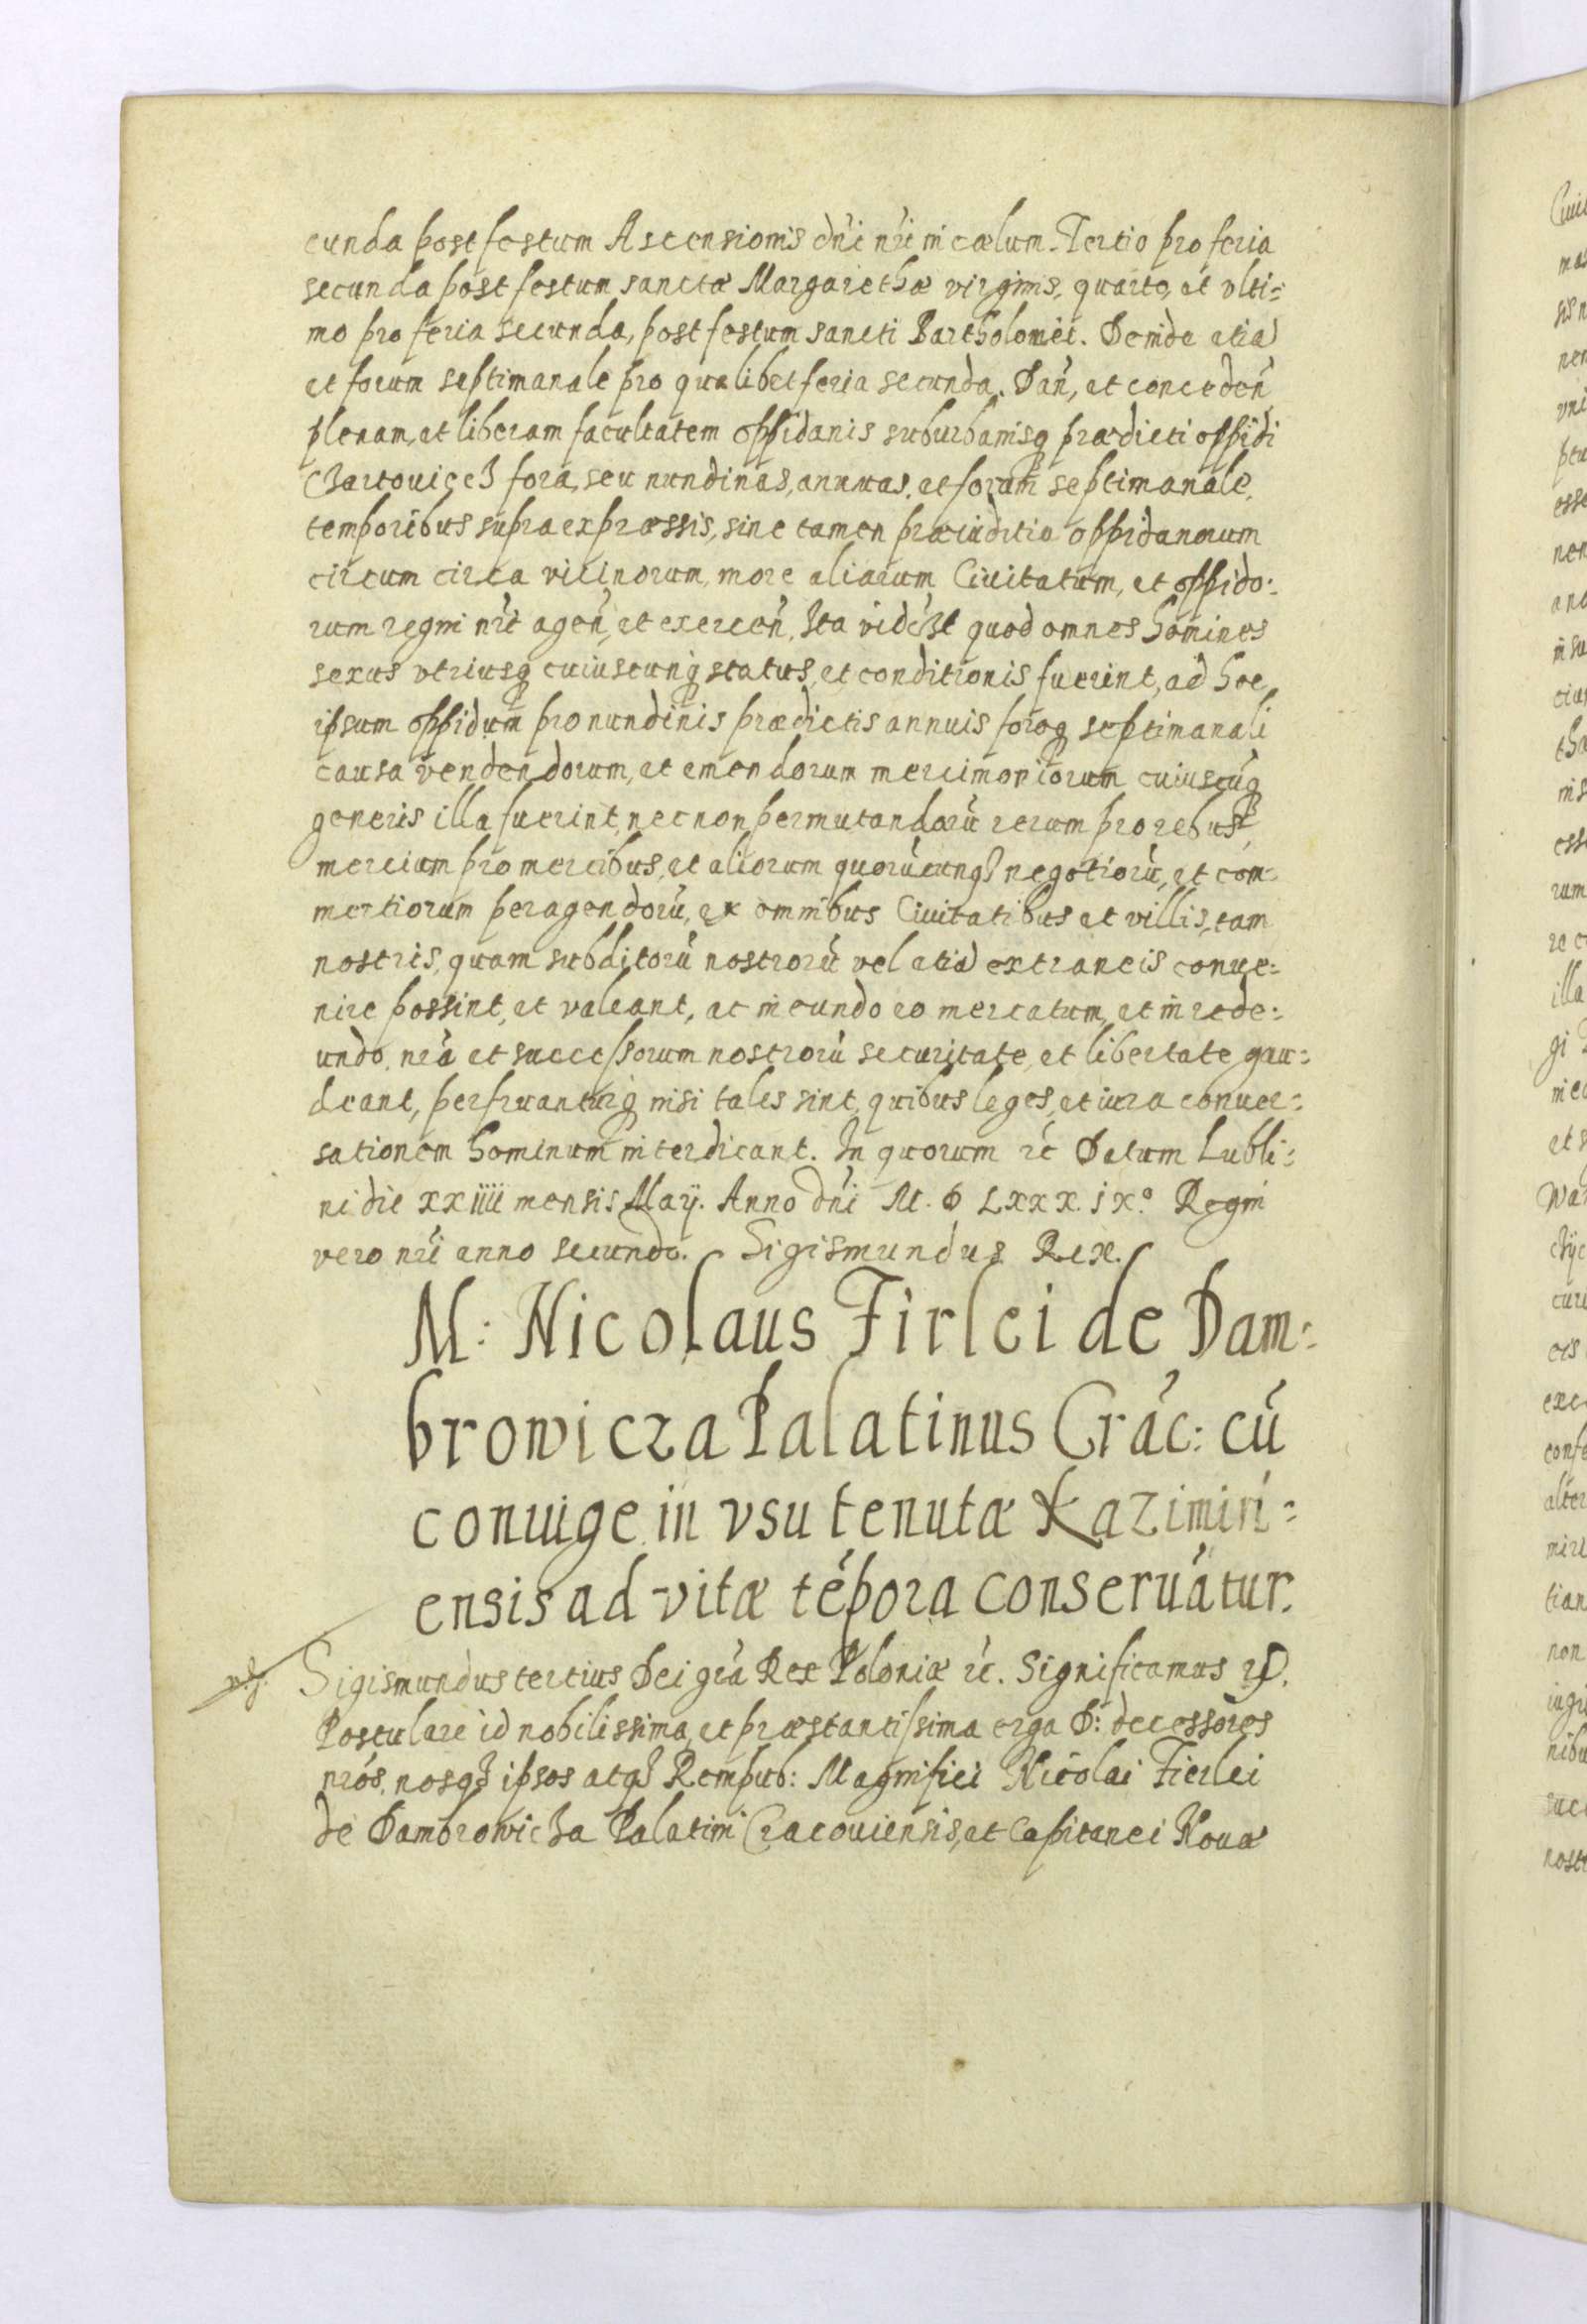 cunda post festum Ascensionis dni nri in cælum. Tertio pro feria
secunda post festum sanctæ Margarethæ virginis, quarto, et vlti=
mo pro feria secunda, post festum sancti Bartholomei. Deinde etia
et forum septimanale pro qualibet feria secunda. Dan, et conceden
plenam, et liberam facultatem oppidanis suburbanisq prædicti oppidi
fora, seu nundinas, annuas, et forum septimanale,
temporibus supra expræssis, sine tamen præiuditio oppidanorum
circum circa vicinorum, more aliarum Ciuitatum, et oppido:
rum regni nri agen, et exercen, Ita videlt quod omnes homines
sexus vtriusq cuiuscunq status, et conditionis fuerint, ad hoc
ipsum oppidum pro nundinis prædictis annuis foroq septimanali
causa vendendorum, et emendorum mercimoniorum cuiuscuq
generis illa fuerint, necnon permutandoru rerum pro rebus,
mercium pro mercibus, et aliorum quorucunq negotioru, et com=
mertiorum peragendoru, ex omnibus Ciuitatibus et villis, tam
nostris, quam subditoru nostroru vel etia extraneis conue=
nire possint, et valeant, ac in eundo eo mercatum, et in rede:
undo, nra et successorum nostroru securitate, et libertate gau=
deant, perfruanturq nisi tales sint, quibus leges, et iura conuer=
sationem hominum interdicant. In quorum rc Datum Lubli=
ni die xxiiii mensis Maÿ. Anno dni M. D Lxxx. ix.° Regni
vero nri anno secundo. Sigismundus Rex.
M: Nicolaus Firlei de Dam=
browicza Palatinus Crac: cu
coniuge in vsu tenutæ Kazimiri=
ensis ad vitæ tepora conseruatur.
Sigismundus tertius Dei gra Rex Poloniæ rc. Significamus rp.
Postulare id nobilissima, et præstantissima erga D: decessores
nros, nosq ipsos atq Rempub: Magnifici Nicolai Fierlei
de Dambrowicza Palatini Cracouiensis, et Capitanei Nouæ